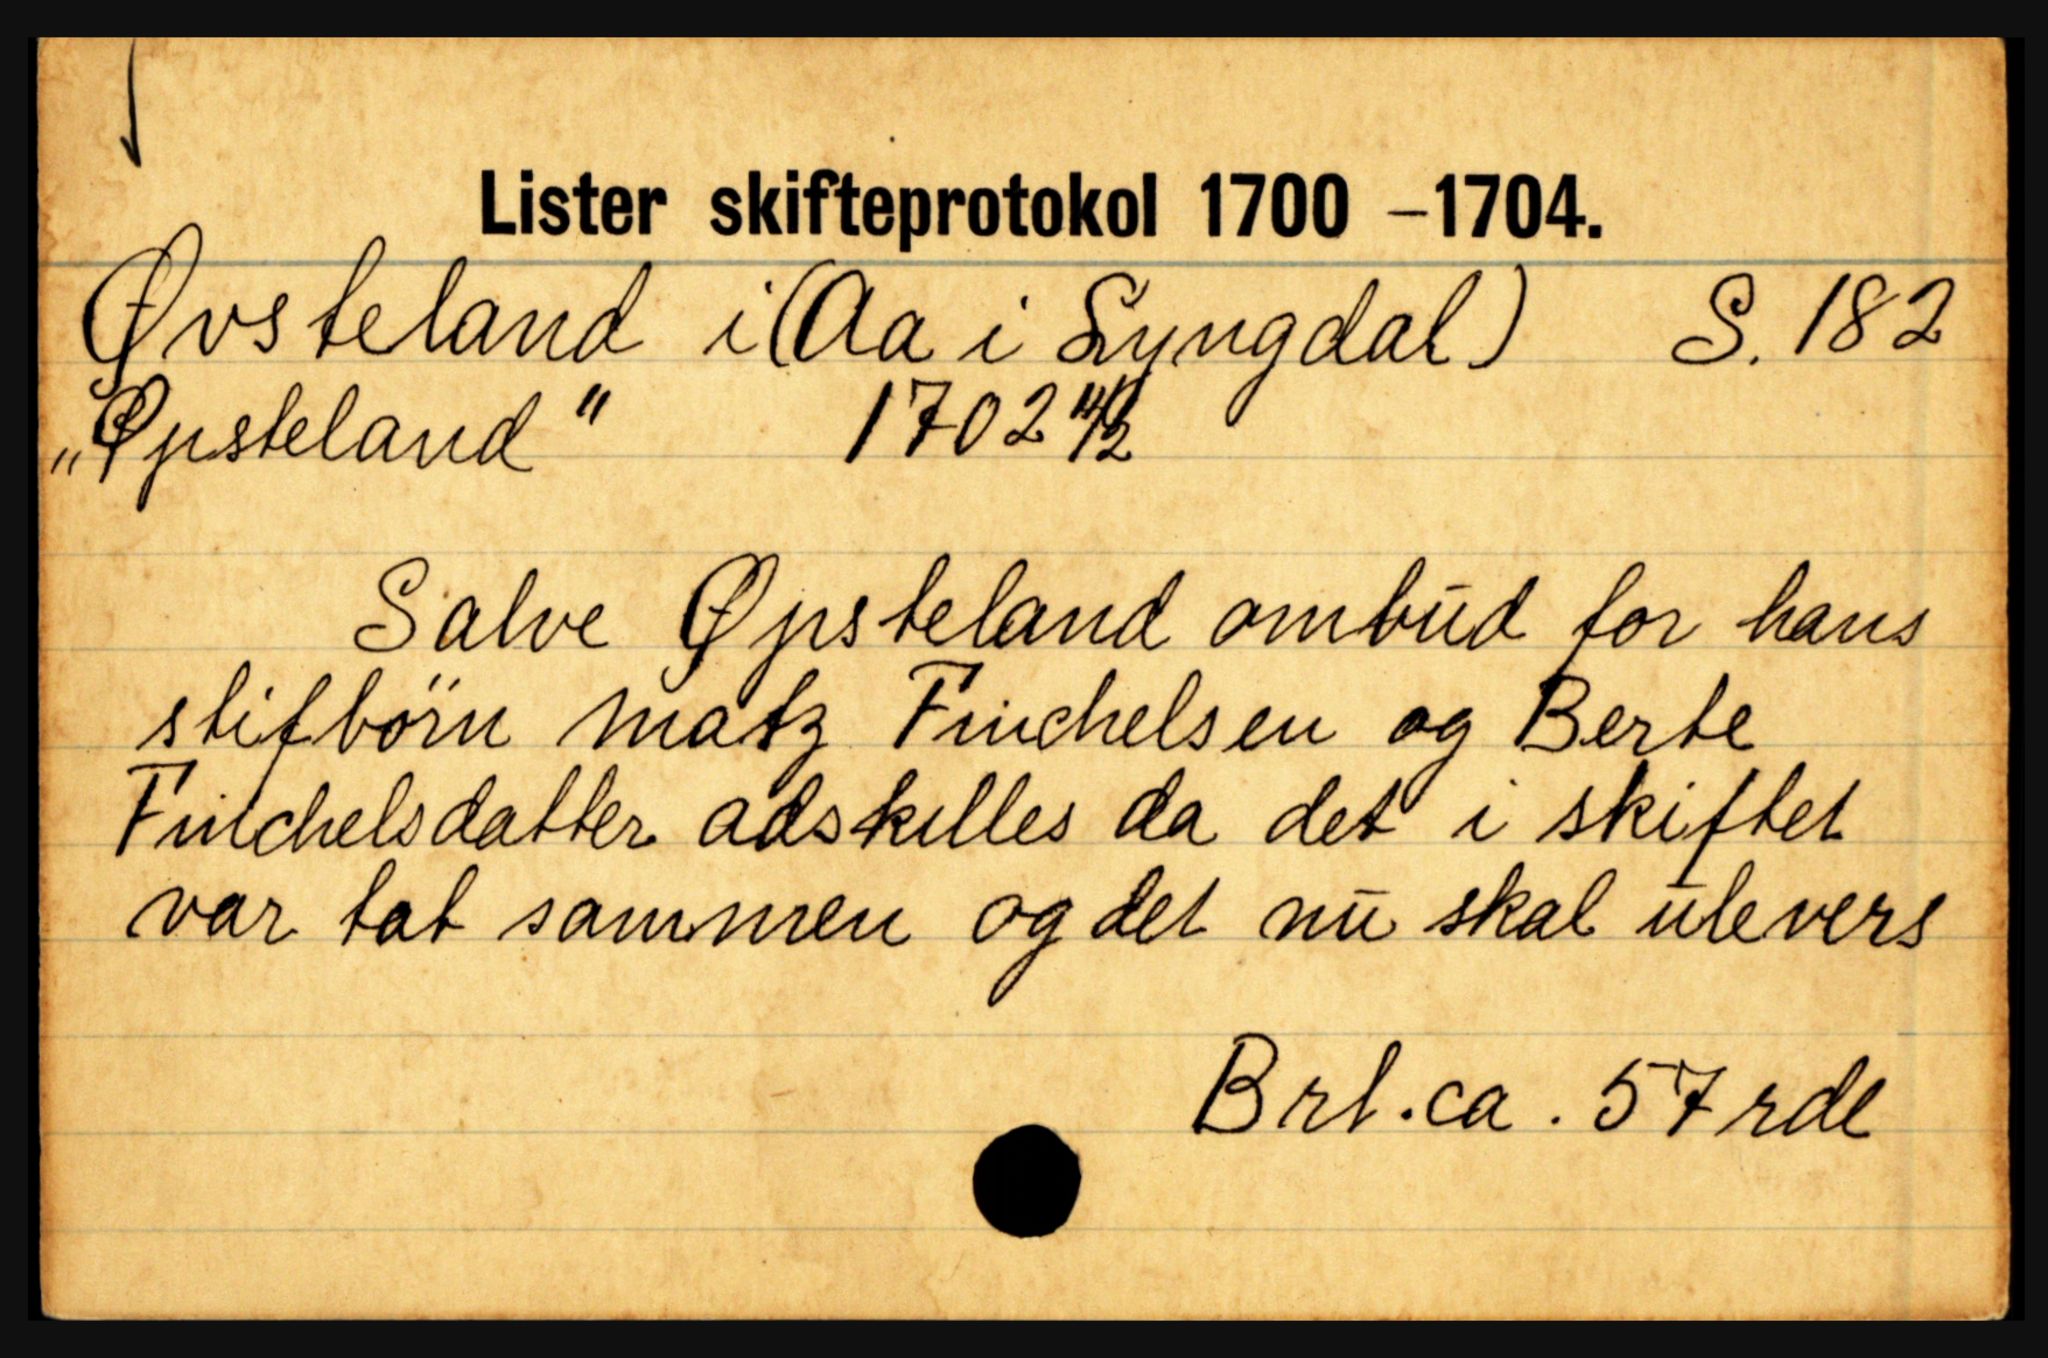 Lister skifteprotokol 1700 –1704.
Øvsteland i (Aa i Lyngdal) S. 182
„Øpsteland" 1702 14/2
Salve Øpsteland ombud for hans
stifbørn Matz Finchelsen og Berte
Finchelsdatter adskilles da det i skiftet
var tat sammen og det nu skal ulevers
Brl. ca. 57 rdl